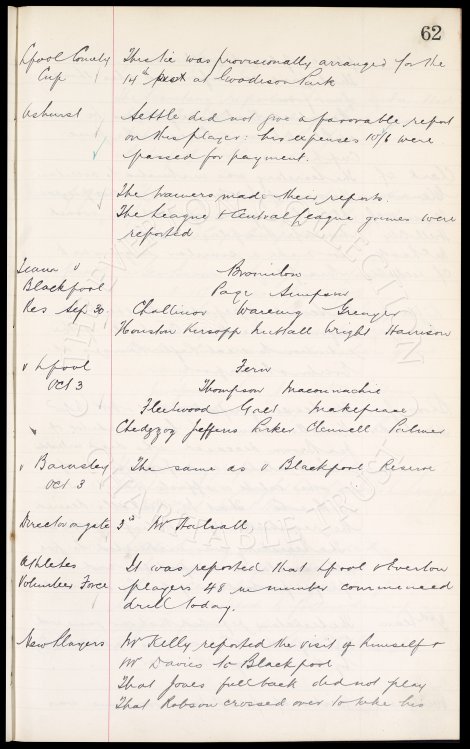 62
Lpool County Cup
This tie was provisionally arranged for the
14th prox at Goodison Park
Ashurst
Settle did not give a favorable report
on this player: his expenses 10/6 were
passed for payment.
The trainers made their reports.
The League & Central League games were
reported
Teams v
Blackpool
Res Sep 30.
Bromilow
Page Simpson
Challinor Wareing Grenyer
Houston Kirsopp Nuttall Wright Harrison
v Lpool
Oct 3
Fern
Thompson Maconnachie
Fleetwood Galt Makepeace
Chedgzoy Jefferis Parker Clennell Palmer
v Barnsley
Oct 3
The same as v Blackpool Reserve
Director a gate 3rd Mr Halsall.
Athletes
Volunteer Force
It was reported that Lpool & Everton
players 48 in number commenced
drill today.
New Players
Mr Kelly reported the visit of himself &
Mr Davies to Blackpool
That Jones full back did not play
That Robson crossed over to take his
THE EVERTON COLLECTION
CHARITABLE TRUST